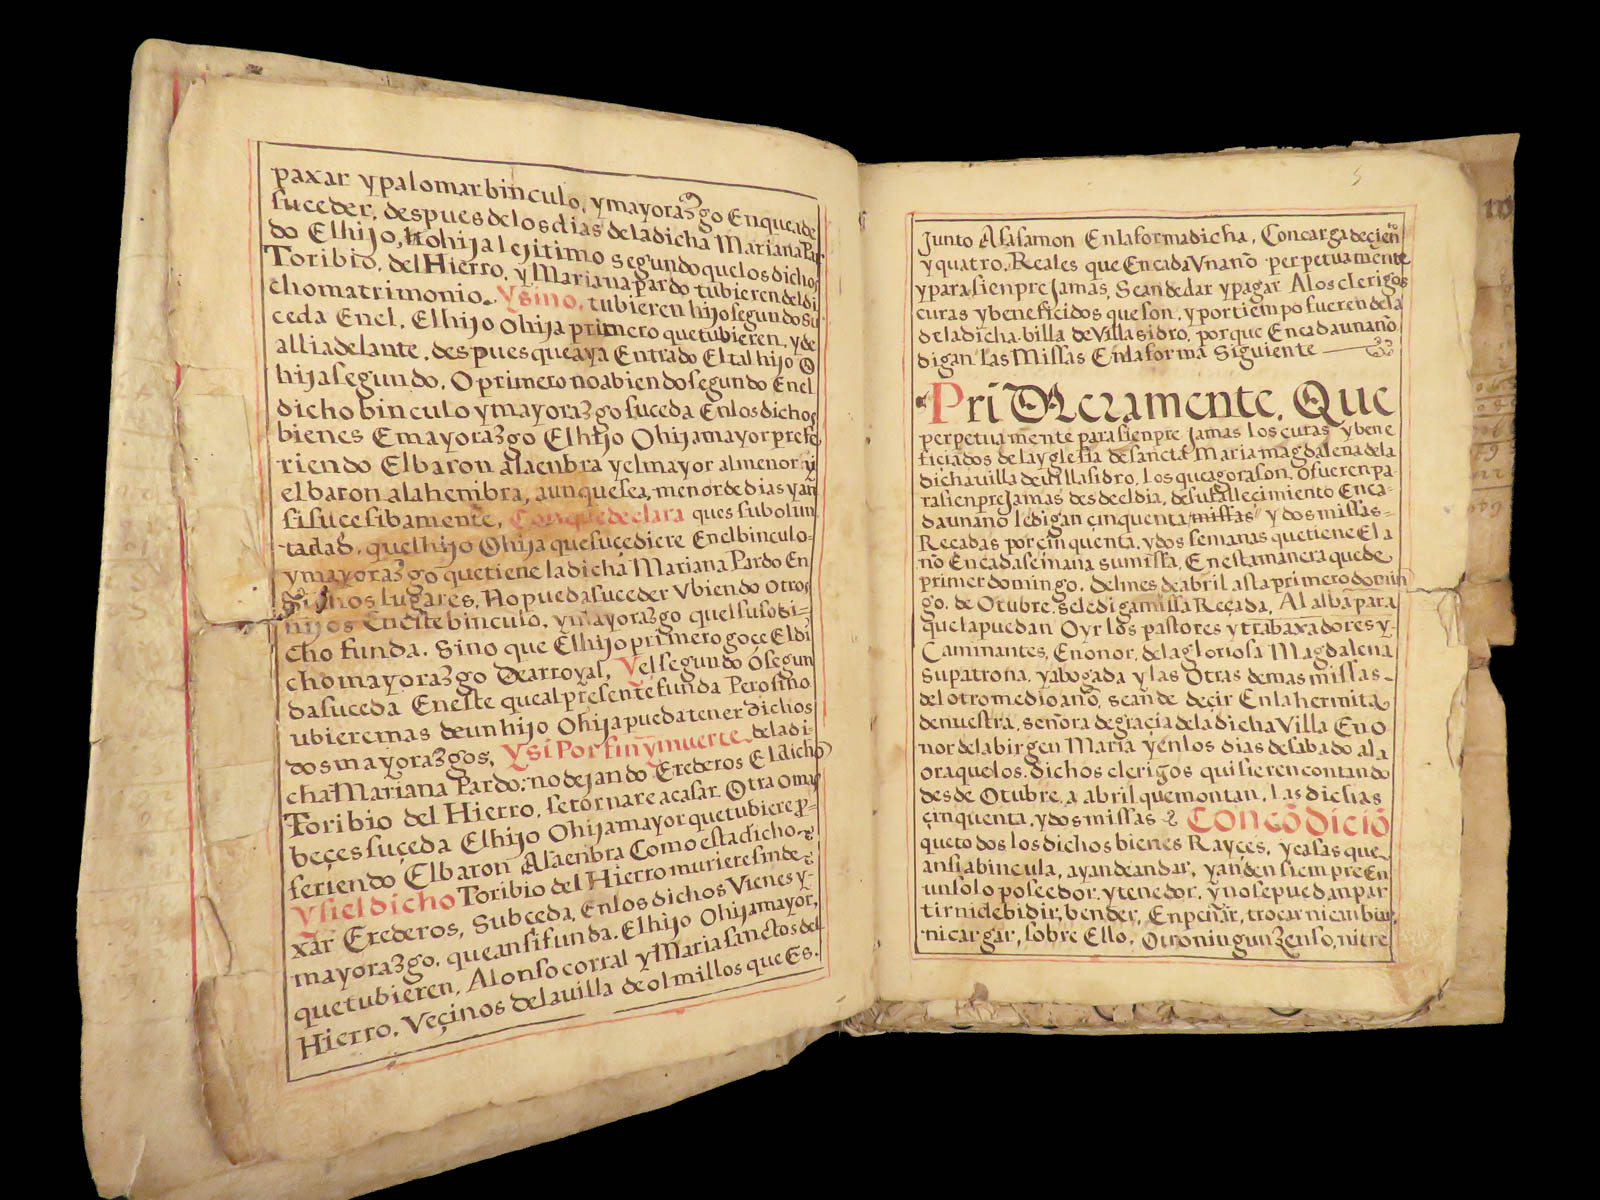 paxar y palomar binculo, y mayorazgo En que a de
suceder, despues de los dias de la dicha Mariana Par
do El hijo, o hija lejitimo segundo que los dichos
Toribio, del Hierro, y Mariana pardo tubieren del di
cho matrimonio. Y sino, tubieren hijo segundo su
ceda En el, El hijo O hija primero que tubieren, y de
alli adelante, despues que aya Entrado El tal hijo O
hija segundo, O primero no abiendo segundo En el
dicho binculo y mayorazgo suceda En los dichos
bienes E mayorazgo El hijo O hija mayor prefe
riendo El baron a la enbra y el mayor al menor y
el baron a la hembra, aunque sea, menor de dias y an
si sucesibamente, Con que declara ques su bolun
tad, quel hijo O hija que suçediere En el binculo-
y mayorazgo que tiene la dicha Mariana Pardo En
dichos lugares, No pueda suceder Vbiendo otros
hijos En este binculo, y mayorazgo quel suso di=
cho funda. Sino que El hijo primero goçe El di
cho mayorazgo De arroyal, Y el segundo ó segun
da suceda En este que al presente funda Pero sino
ubiere mas de un hijo O hija pueda tener dichos
dos mayorazgos, Y si Por fin y muerte de la di-
cha Mariana Pardo; no dejando Erederos El dicho
Toribio del Hierro, se tornare a casar Otra O mas
beçes suçeda El hijo O hija mayor que tubiere pre-
feriendo El baron A la enbra Como esta dicho
Y si el dicho Toribio del Hierro muriere sin de
xar Erederos, Subceda, En los dichos Vienes y-
mayorazgo, que ansi funda, El hijo O hija mayor,
que tubieren, Alonso corral y Maria sanctos del
Hierro, Veçinos de la villa de olmillos que Es.
5
Junto A sasamon En la forma dicha, Con carga de çien
y quatro, Reales que En cada Vn año perpetuamente
y para sienpre Jamas, Sean de dar y pagar A los clerigos
curas y beneficidos que son, y por tienpo fueren de la
de la dicha billa de Villasidro, porque En cada un año
digan las Missas En la forma Siguiente
Primeramente, Que
perpetuamente para sienpre jamas los curas y bene
ficiados de la yglesia de sancta Maria magdalena de la
dicha villa de villasidro, los que agora son, O fueren pa-
ra sienpre Jamas desde el dia, de su fallecimiento En ca-
da un año le digan çinquenta missas y dos missas-
Reçadas por çinquenta, y dos semanas que tiene El a
ño En cada semana su missa, En esta manera que de
primer domingo, del mes de abril asta primero domin
go, de Otubre, se le diga missa Reçada, Al alba para
que la puedan Oyr los pastores y trabaxadores y-
Caminantes, En onor, de la gloriosa Magdalena
Su patrona, y abogada y las Otras demas missas-
del otro medio año, sean de deçir En la hermita
de nuestra, señora de graçia de la dicha Villa En o
nor de la birgen Maria y en los dias de sabado a la
ora que los, dichos clerigos quisieren contando
desde Otubre, a abril que montan, las dichas
çinquenta, y dos missas Con cōdiciō
que todos los dichos bienes Rayçes, y casas que
ansi abincula, ayan de andar, y anden sienpre En
un solo poseedor, y tenedor, y no se puedan par
tir ni debidir, bender, Enpeñar, trocar ni canbiar,
ni cargar, sobre Ello, otro ningun zenso, ni tre